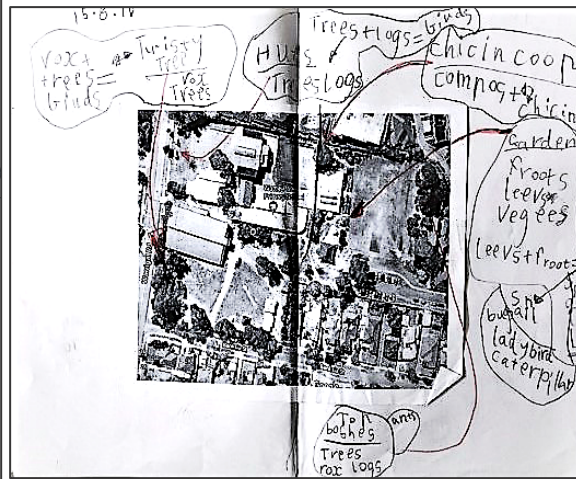 15.8.18
rox +
trees =
birds
Turisty
Tree
rox
Trees
HUTS
Trees logs
Trees + logs = birds
chicin coop
compost + chicin
Garden
froots
leevs
vegees
leevs + froot =
snail
ladybird
caterpillar
Top
boshes
Trees
rox logs
ants